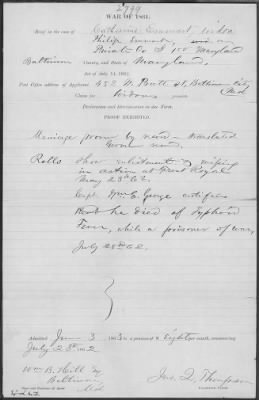 2799
WAR OF 1861.
Brief in the case of Catharine Emmert, widow
Philip Emmert,
Private Co I 1st Maryland
Baltimore County, and State of Maryland.
Act of July 14, 1862.
Post Office address of Applicant 452 W. Pratt St, Baltimore City
Md
Claim for Widows pension.
Declaration and Identification in due form.
PROOF EXHIBITED.
Marriage proven by record translated
from record.
Rolls show enlistment & missing
in action at Front Royal
May 23d 62.
Capt Wm E. George certifies
that he died of Typhoid
Fever, while a prisoner of war,
July 28th 62.
Admitted Jan 3 1863 a pension of Eight per month, commencing
July 28th 1862
Wm B. Hill Esq
Baltimore
Md
Jas. L. Thompson